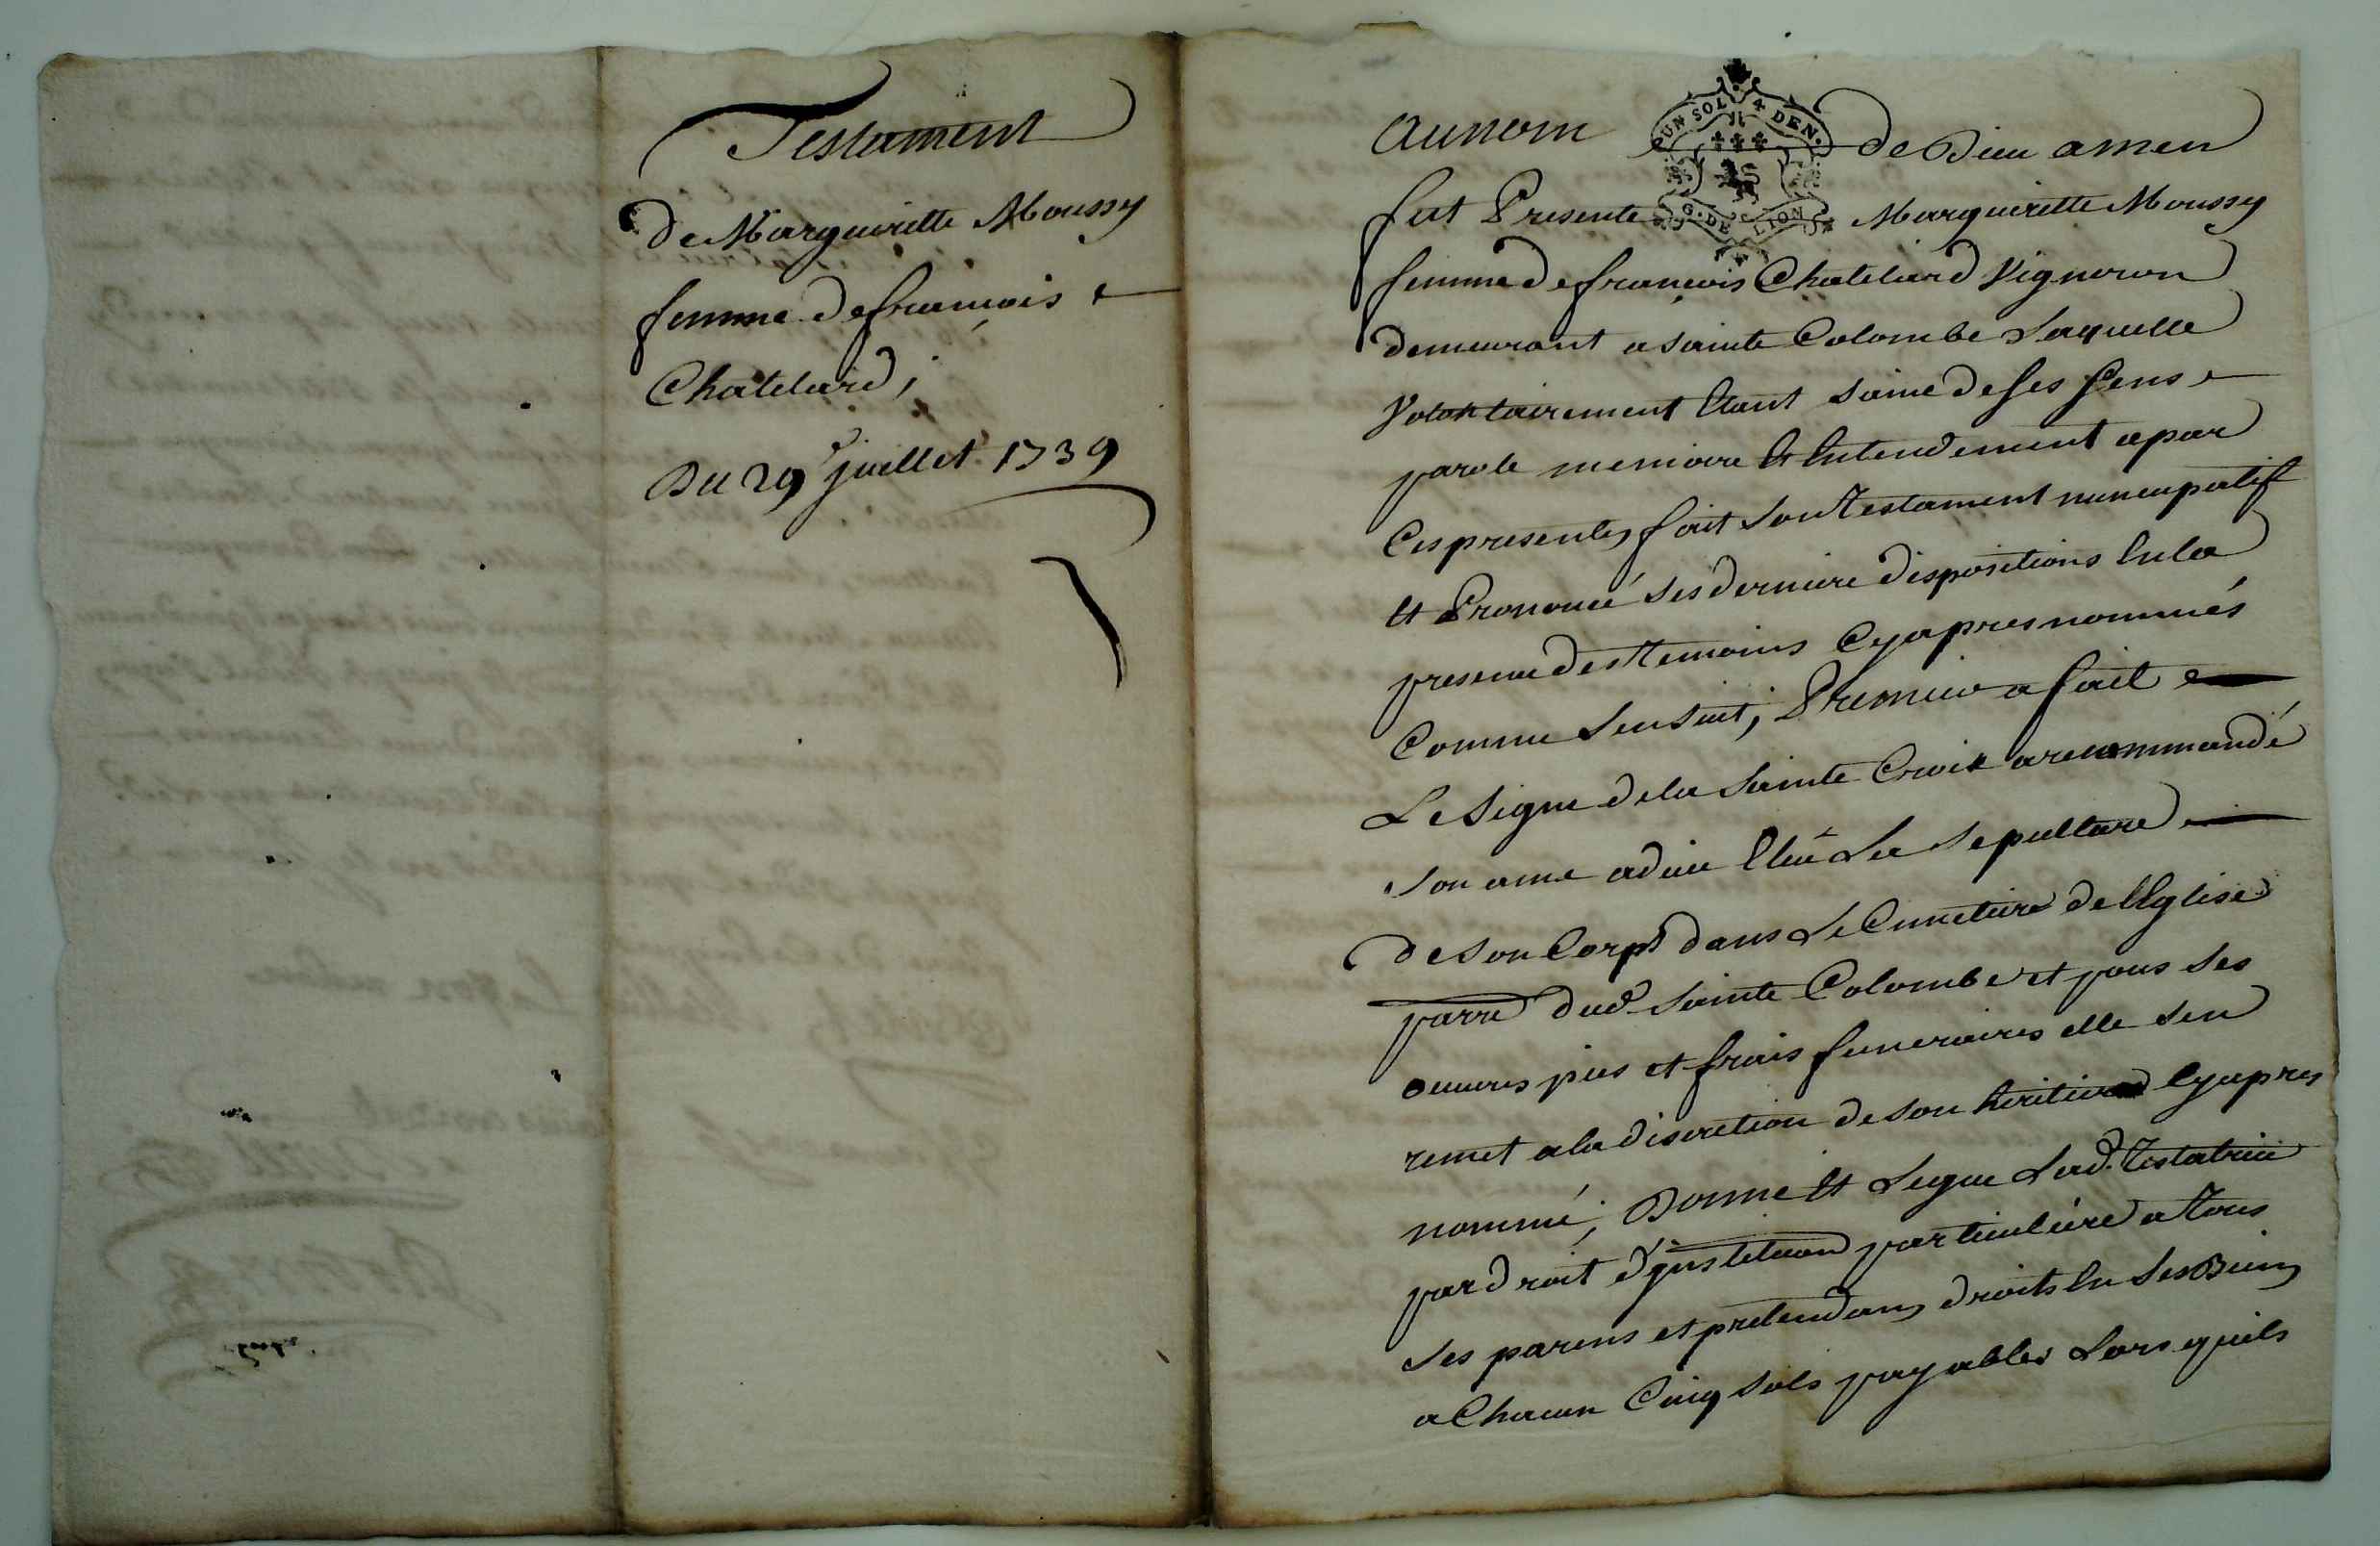 Testament
de Margueritte Moussy
femme de francois
Chatelard;
Du 29e juillet 1739
Au nom de Dieu amen
UN SOL 4 DEN.
G. DE LION
fut Presente Margueritte Moussy
femme de francois Chatelard Vigneron
demeurant a sainte Colombe Laquelle
Volontairement Etant saine de ses sens
parole memoire Et Entendement a par
Ces presentes fait son testament nuncupatif
Et Prononcé ses derniere dispositions En la
presence des temoins Cy apres nommés
Comme sensuit; Premier a fait
Le signe de la sainte Croix a recommandé
son ame a dieu Elue La sepulture
de son Corps dans Le Cimetiere de lEglise
parre dud. sainte Colombe et pour ses
oeuvres pies et frais funeraires elle sen
remet a la discretion de son heritier Cy apres
nommé; Donne Et Legue Lad. testatrice
par droit dJnstitution particuliere a tous
ses parens et pretendans droits En ses Biens
a Chacun Cinq sols payables Lors quils